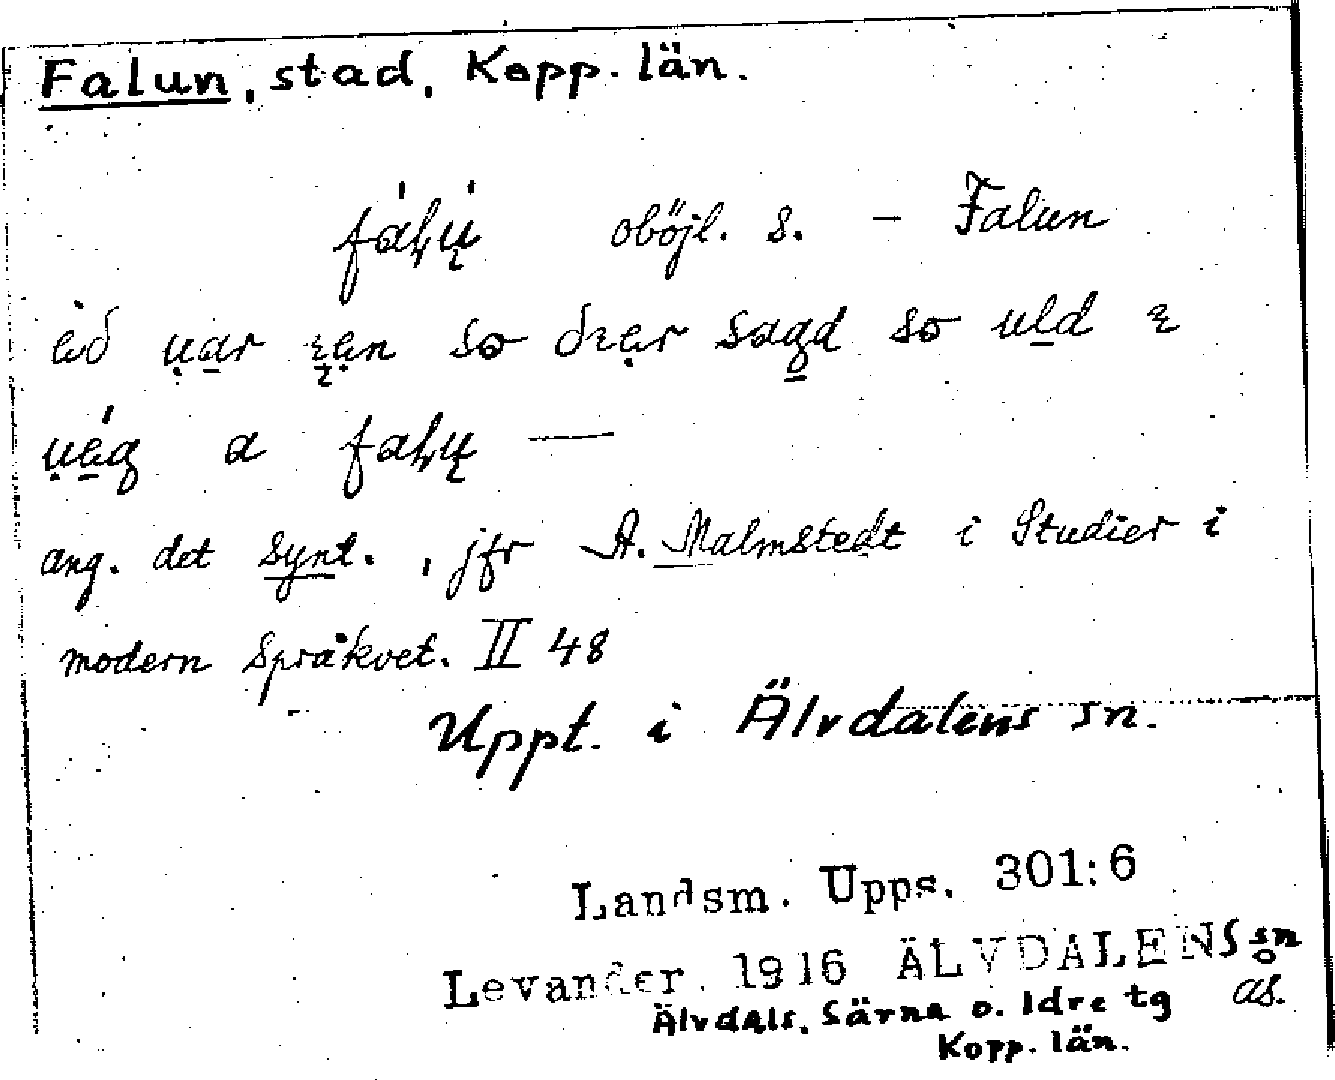 Falun, stad, Kopp. län.
fálų́ oböjl. s. – Falun
ed ųar ęn so dıęr sagd so uld ı
ųég a falų —
ang. det synt. , jfr A. Malmstedt i Studier i
modern Språkvet. II 48
Uppt. i Älvdalens sn.
Landsm. Upps. 301:6
Levander. 1916 ÄLVDALENS sn
Älvdals, Särna o. Idre tg as.
Kopp. län.